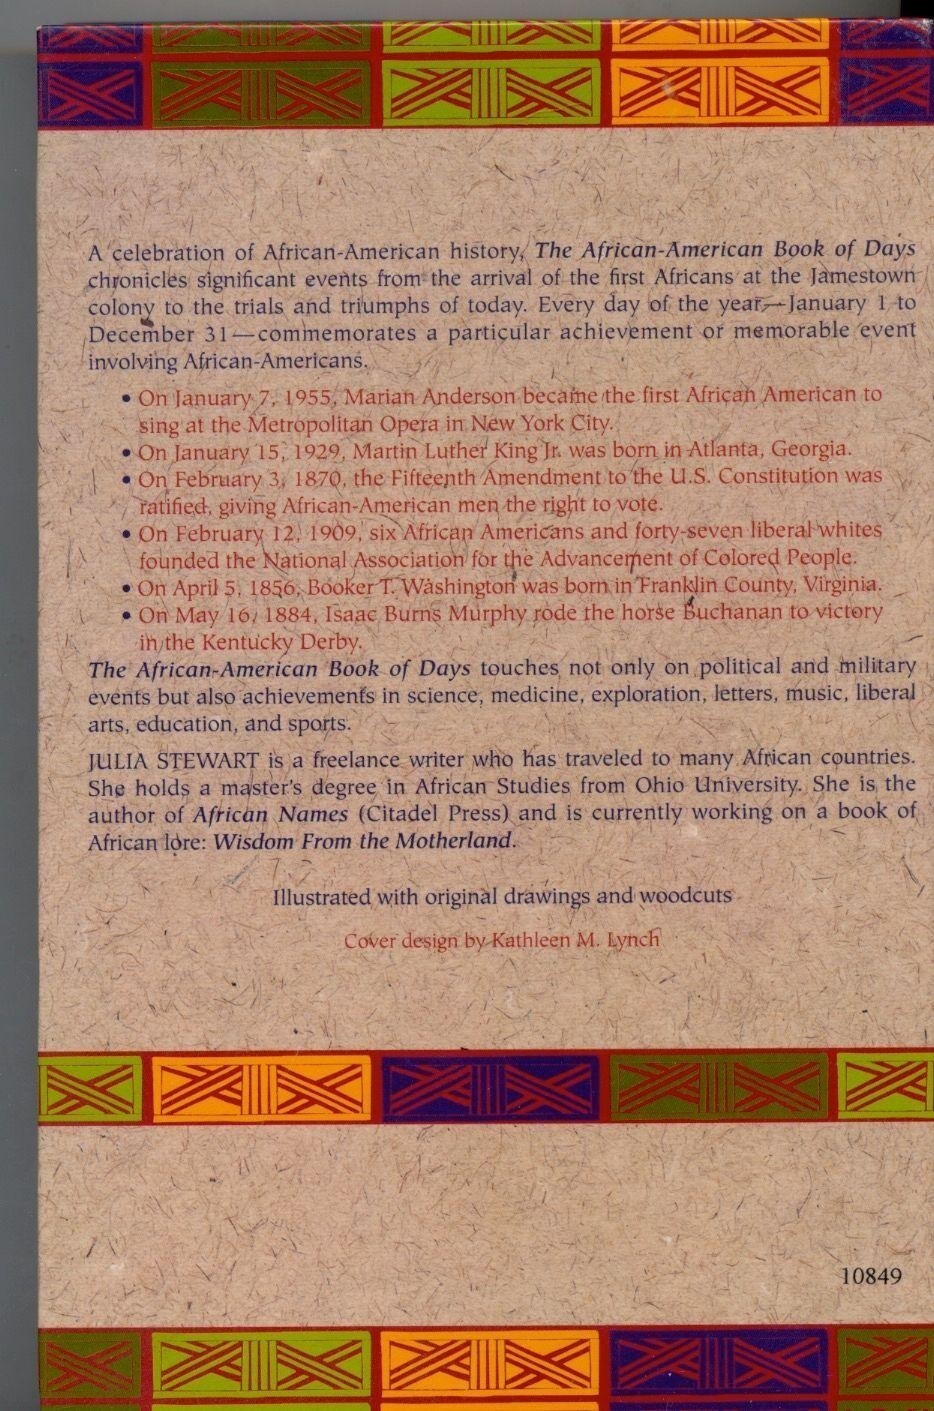 A celebration of African-American history, The African-American Book of Days
chronicles significant events from the arrival of the first Africans at the Jamestown
colony to the trials and triumphs of today. Every day of the year—January 1 to
December 31—commemorates a particular achievement or memorable event
involving African-Americans.
• On January 7, 1955, Marian Anderson became the first African American to
sing at the Metropolitan Opera in New York City.
• On January 15, 1929, Martin Luther King Jr. was born in Atlanta, Georgia.
• On February 3, 1870, the Fifteenth Amendment to the U.S. Constitution was
ratified, giving African-American men the right to vote.
• On February 12, 1909, six African Americans and forty-seven liberal whites
founded the National Association for the Advancement of Colored People.
• On April 5, 1856, Booker T. Washington was born in Franklin County, Virginia.
• On May 16, 1884, Isaac Burns Murphy rode the horse Buchanan to victory
in the Kentucky Derby.
The African-American Book of Days touches not only on political and military
events but also achievements in science, medicine, exploration, letters, music, liberal
arts, education, and sports.
JULIA STEWART is a freelance writer who has traveled to many African countries.
She holds a master's degree in African Studies from Ohio University. She is the
author of African Names (Citadel Press) and is currently working on a book of
African lore: Wisdom From the Motherland.
Illustrated with original drawings and woodcuts
Cover design by Kathleen M. Lynch
10849